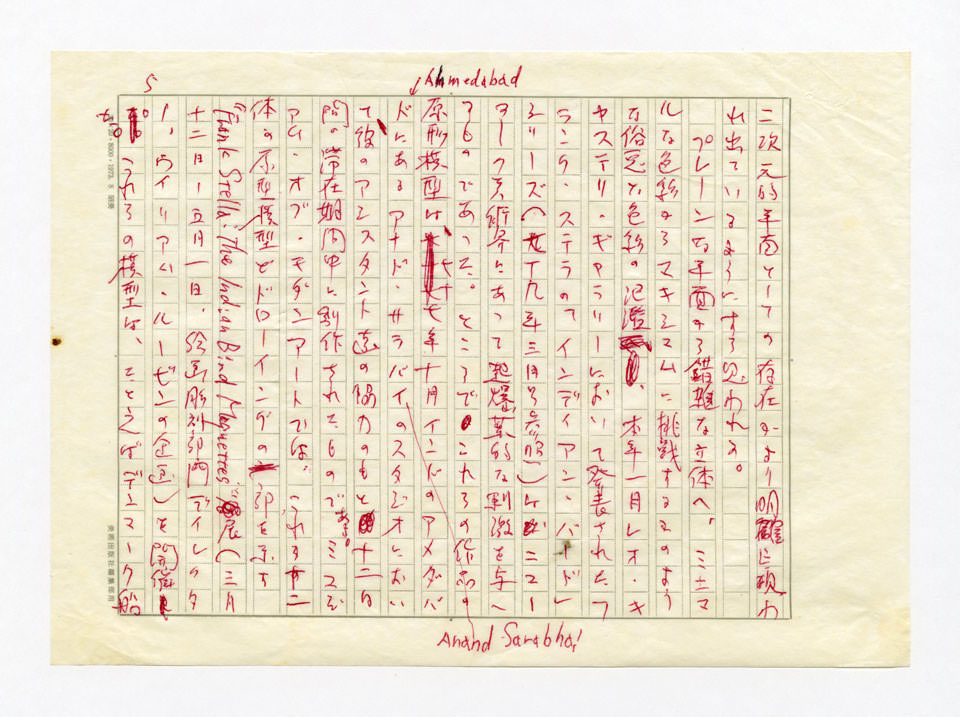 Ahmedabad
5
二次元的平面としての存在がより明確に現わ
れ出ているようにすら思われる。
プレーンな平面から錯雑な立体へ、ミニマ
ルな色彩からマキシマムに挑戦するかのよう
な俗悪な色彩の氾濫、本年一月レオ・キ
ャステリ・ギャラリーにおいて発表されたフ
ランク・ステラの〈インディアン・バード〉
シリーズ(七九年三月号参照)は、ニューヨ
ーク美術界にあって起爆薬的な刺激を与え
るものであった。ところで、これらの作品の
原形模型は七七年十月インドのアメダバ
ドにあるアナンド・サラバイのスタジオにおい
て彼のアシスタント達の協力のもと十二日
間の滞在期間中に制作されたものである。ミュゼ
アム・オブ・モダンアートでは、これら十二
体の原型模型とドローイングの一部を示す
"Frank Stella; The Indian Bird Maquettes" 展(三月
十二日ー五月一日、絵画彫刻部門ディレクタ
ー、ウィリアム・ルービンの企画)を開催
した。これらの模型は、たとえばデンマーク船
Anand Sarabhai